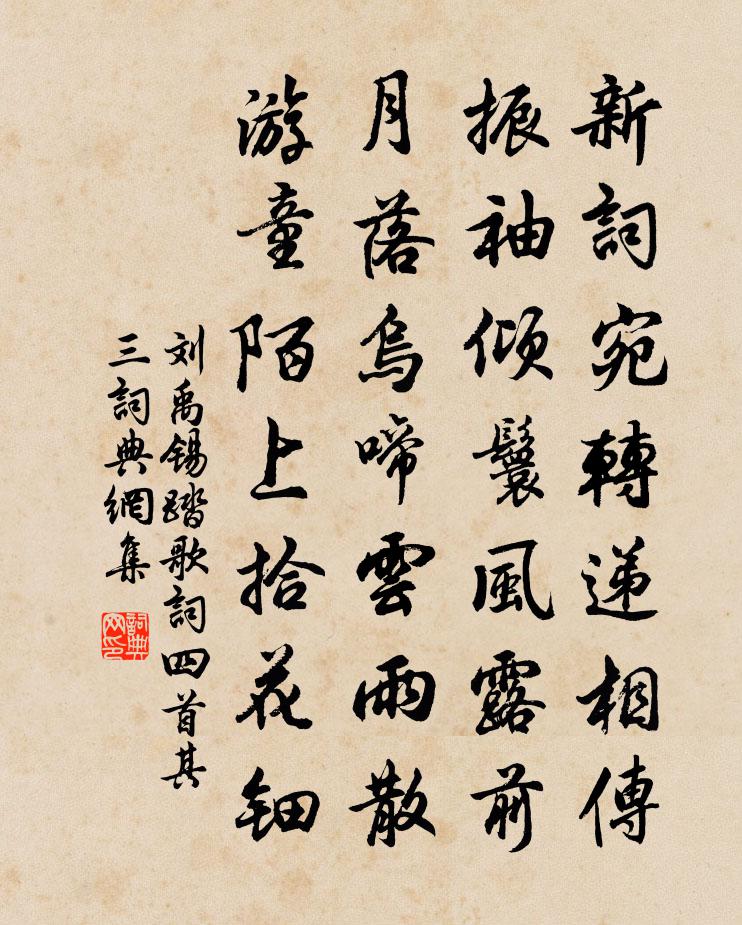 新詞宛轉遞相傳
振袖傾鬟風露前
月落烏啼雲雨散
游童陌上拾花钿
刘禹锡踏歌詞四首其
三詞典網集
詞典
网印